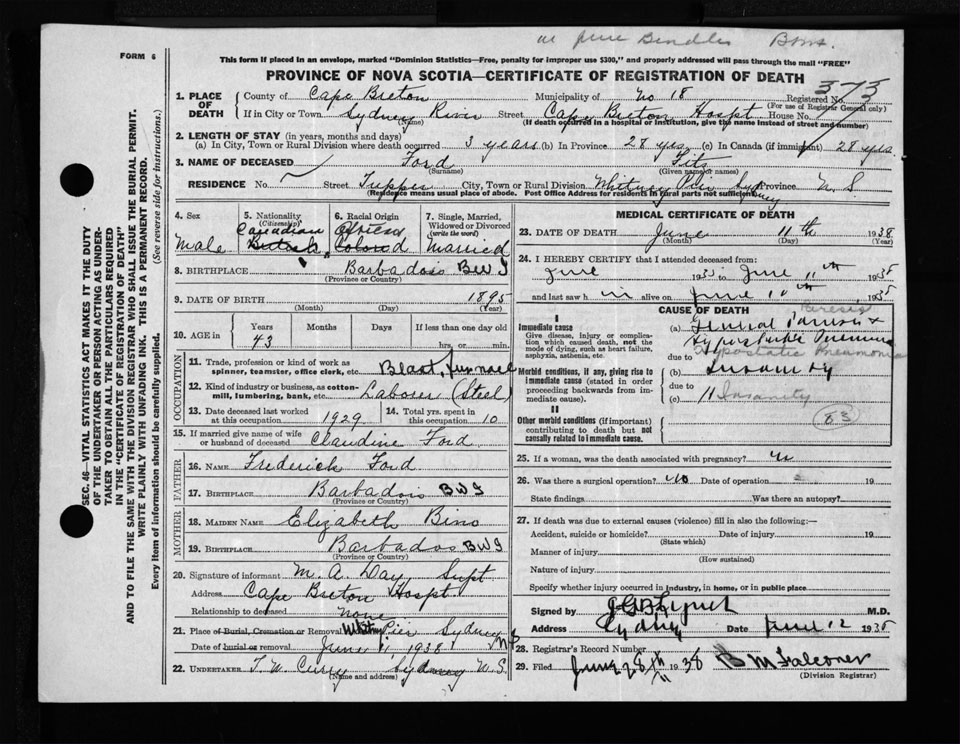 FORM 6
This form if placed in an envelope, marked "Dominion Statistics—Free, penalty for improper use $300," and properly addressed will pass through the mail "FREE"
PROVINCE OF NOVA SCOTIA—CERTIFICATE OF REGISTRATION OF DEATH
373
SEC. 46—VITAL STATISTICS ACT MAKES IT THE DUTY
OF THE UNDERTAKER OR PERSON ACTING AS UNDER-
TAKER TO OBTAIN ALL THE PARTICULARS REQUIRED
IN THE "CERTIFICATE OF REGISTRATION OF DEATH"
AND TO FILE THE SAME WITH THE DIVISION REGISTRAR WHO SHALL ISSUE THE BURIAL PERMIT.
WRITE PLAINLY WITH UNFADING INK. THIS IS A PERMANENT RECORD.
Every item of information should be carefully supplied. (See reverse side for instructions.)
1. PLACE OF DEATH
County of Cape Breton Municipality of No 18 Registered No.
(For use of Registrar General only)
If in City or Town Sydney River Street Cape Breton Hospt House No.
(Name) (If death occurred in a hospital or institution, give the name instead of street and number)
2. LENGTH OF STAY (in years, months and days)
(a) In City, Town or Rural Division where death occurred 3 years (b) In Province 28 yrs (c) In Canada (if immigrant) 28 yrs
3. NAME OF DECEASED Ford Fits
(Surname) (Given name or names)
RESIDENCE No. Street Tupper City, Town or Rural Division Whitney Pier Sydney Province N S
(Residence means usual place of abode. Post Office Address for residents in rural parts not sufficient)
4. Sex Male
5. Nationality (Citizenship) Canadian British
6. Racial Origin African Colored
7. Single, Married, Widowed or Divorced (write the word) Married
8. BIRTHPLACE Barbados BWI
(Province or Country)
9. DATE OF BIRTH 1895
(Month) (Day) (Year)
10. AGE in Years Months Days If less than one day old
43 hrs. or min.
OCCUPATION
11. Trade, profession or kind of work as spinner, teamster, office clerk, etc. Blast, furnace
12. Kind of industry or business, as cotton-mill, lumbering, bank, etc. Laborer (Steel)
13. Date deceased last worked at this occupation 1929 14. Total yrs. spent in this occupation 10
15. If married give name of wife or husband of deceased Claudine Ford
FATHER
16. NAME Frederick Ford
17. BIRTHPLACE Barbados BWI
(Province or Country)
MOTHER
18. MAIDEN NAME Elizabeth Bino
19. BIRTHPLACE Barbados BWI
(Province or Country)
20. Signature of informant M. A. Day, Supt
Address Cape Breton Hospt
Relationship to deceased none
21. Place of Burial, Cremation or Removal Whitney Pier Sydney NS
Date of burial or removal June 1938
22. UNDERTAKER T. W. Curry Sydney N.S
(Name and address)
MEDICAL CERTIFICATE OF DEATH
23. DATE OF DEATH June 11th 1938
(Month) (Day) (Year)
24. I HEREBY CERTIFY that I attended deceased from:
June 1935 to June 11th 1938
and last saw him alive on June 10th, 1938
CAUSE OF DEATH
I
Immediate cause
Give disease, injury or complication which caused death, not the mode of dying, such as heart failure, asphyxia, asthenia, etc.
Morbid conditions, if any, giving rise to immediate cause (stated in order proceeding backwards from immediate cause).
II
Other morbid conditions (if important) contributing to death but not causally related to immediate cause.
(a) General Paresis &
Paresis
Hypostatic Pneumonia
due to Hypostatic Pneumonia
(b) Insanity
due to
(c) " Insanity
83
25. If a woman, was the death associated with pregnancy? no
26. Was there a surgical operation? No Date of operation 19
State findings Was there an autopsy?
27. If death was due to external causes (violence) fill in also the following:—
Accident, suicide or homicide? Date of injury 19
(State which)
Manner of injury
(How sustained)
Nature of injury
Specify whether injury occurred in industry, in home, or in public place
Signed by J G B Lynch M.D.
Address Sydney Date June 12 1938
28. Registrar's Record Number
29. Filed June 28th 1938 B M Falconer
(Division Registrar)